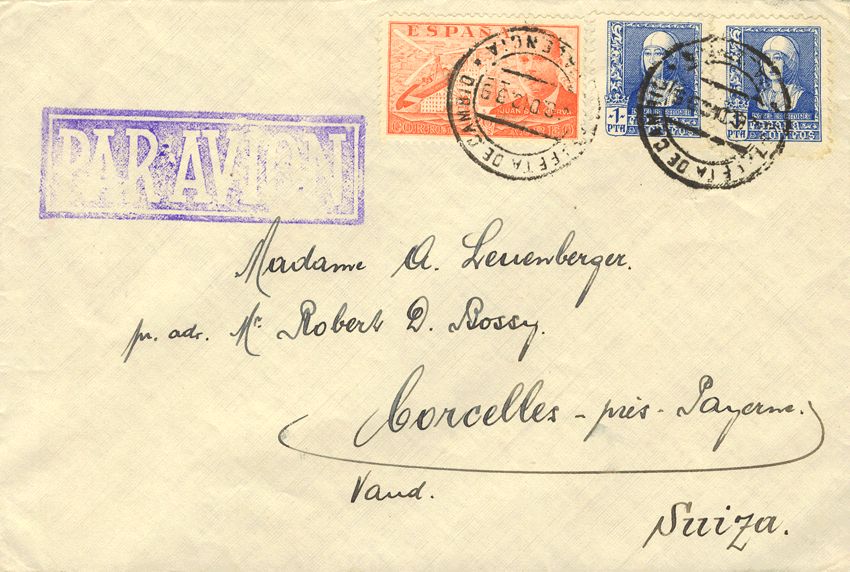 ESPAÑA
JUAN DE
-1-
PTA
PTA
CORREOS
PAR AVION
Madame A. Leuenberger.
pr. adr. Mr. Robert D. Bossy.
Corcelles - près - Payerne.
Vaud.
Suiza.